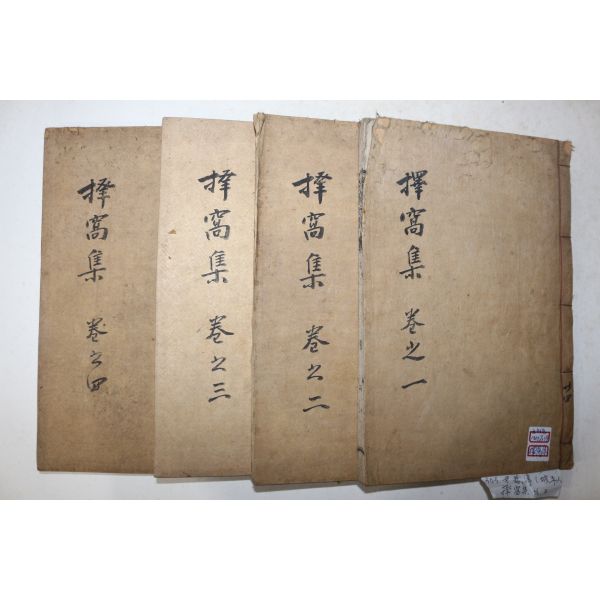 擇窩集 卷之一
擇窩集 卷之二
擇窩集 卷之三
擇窩集 卷之四